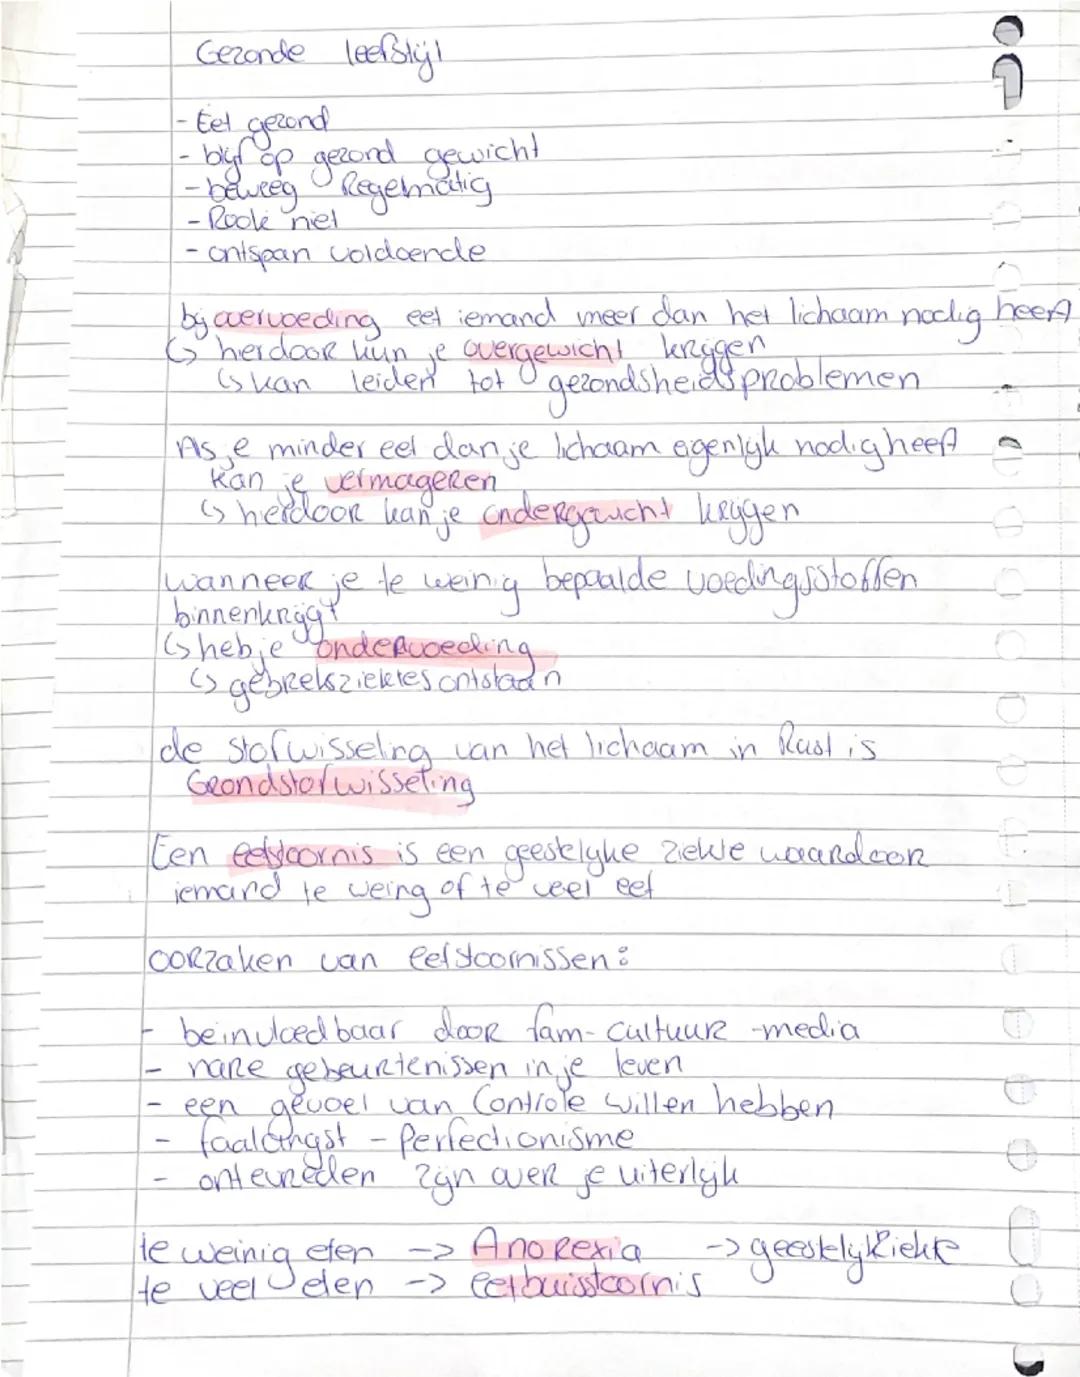 Gezonde leefstijl
- Eet gezond
- blijf op gezond gewicht
- beweeg Regelmatig
- Rook niet
- ontspan voldoende
bij overvoeding eet iemand meer dan het lichaam nodig heeft
↳ hierdoor kun je overgewicht krijgen
↳ kan leiden tot gezondsheidsproblemen
Als je minder eet dan je lichaam eigenlijk nodig heeft
kan je vermageren
↳ hierdoor kan je ondergewicht krijgen
wanneer je te weinig bepaalde voedingsstoffen
binnenkrijgt
↳ heb je ondervoeding
↳ gebreksziektes ontstaan
de stofwisseling van het lichaam in Rust is
Grondstofwisseling
Een eetstoornis is een geestelijke ziekte waardoor
iemand te weing of te veel eet
oorzaken van eetstoornissen:
- beinvloedbaar door fam- cultuur -media
- nare gebeurtenissen in je leven
- een gevoel van Controle willen hebben
- faalangst - Perfectionisme
- ontevreden zijn over je uiterlijk
te weinig eten -> Anorexia -> geestelijk ziekte
te veel eten -> eetbuistoornis